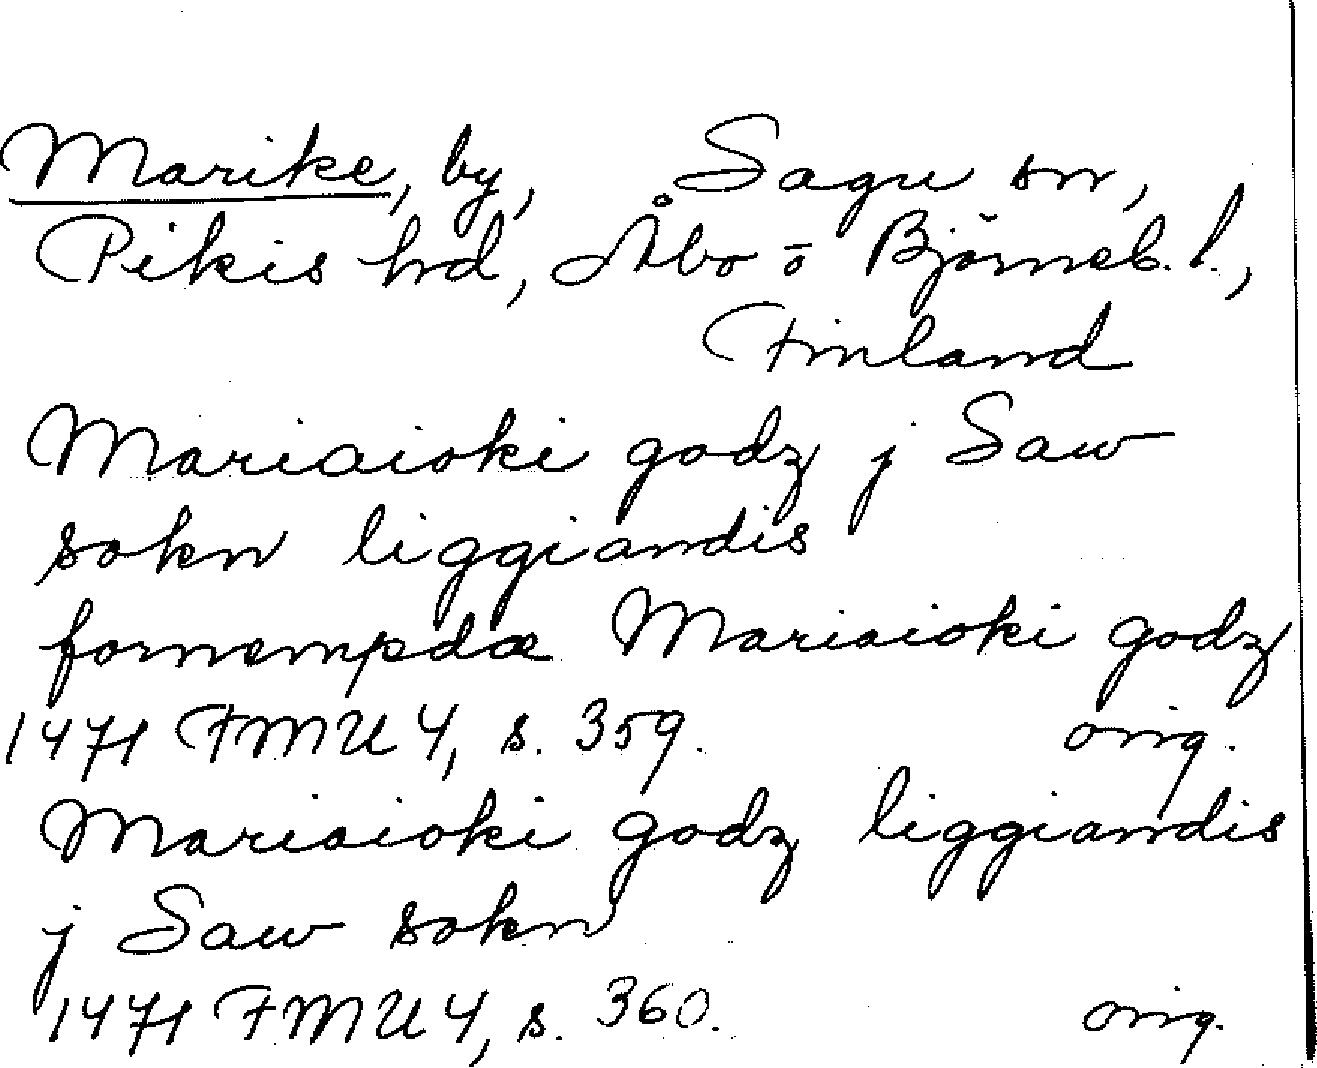 Marike, by, Sagu sn,
Pikis hd, Åbo ō Björneb. l.,
Finland
Mariaioki godz j Saw
sokn liggiandis
fornempdæ Mariaioki godz
1471 FMU 4, s. 359. orig.
Mariaioki godz liggiandis
j Saw sokn
1471 FMU 4, s. 360. orig.